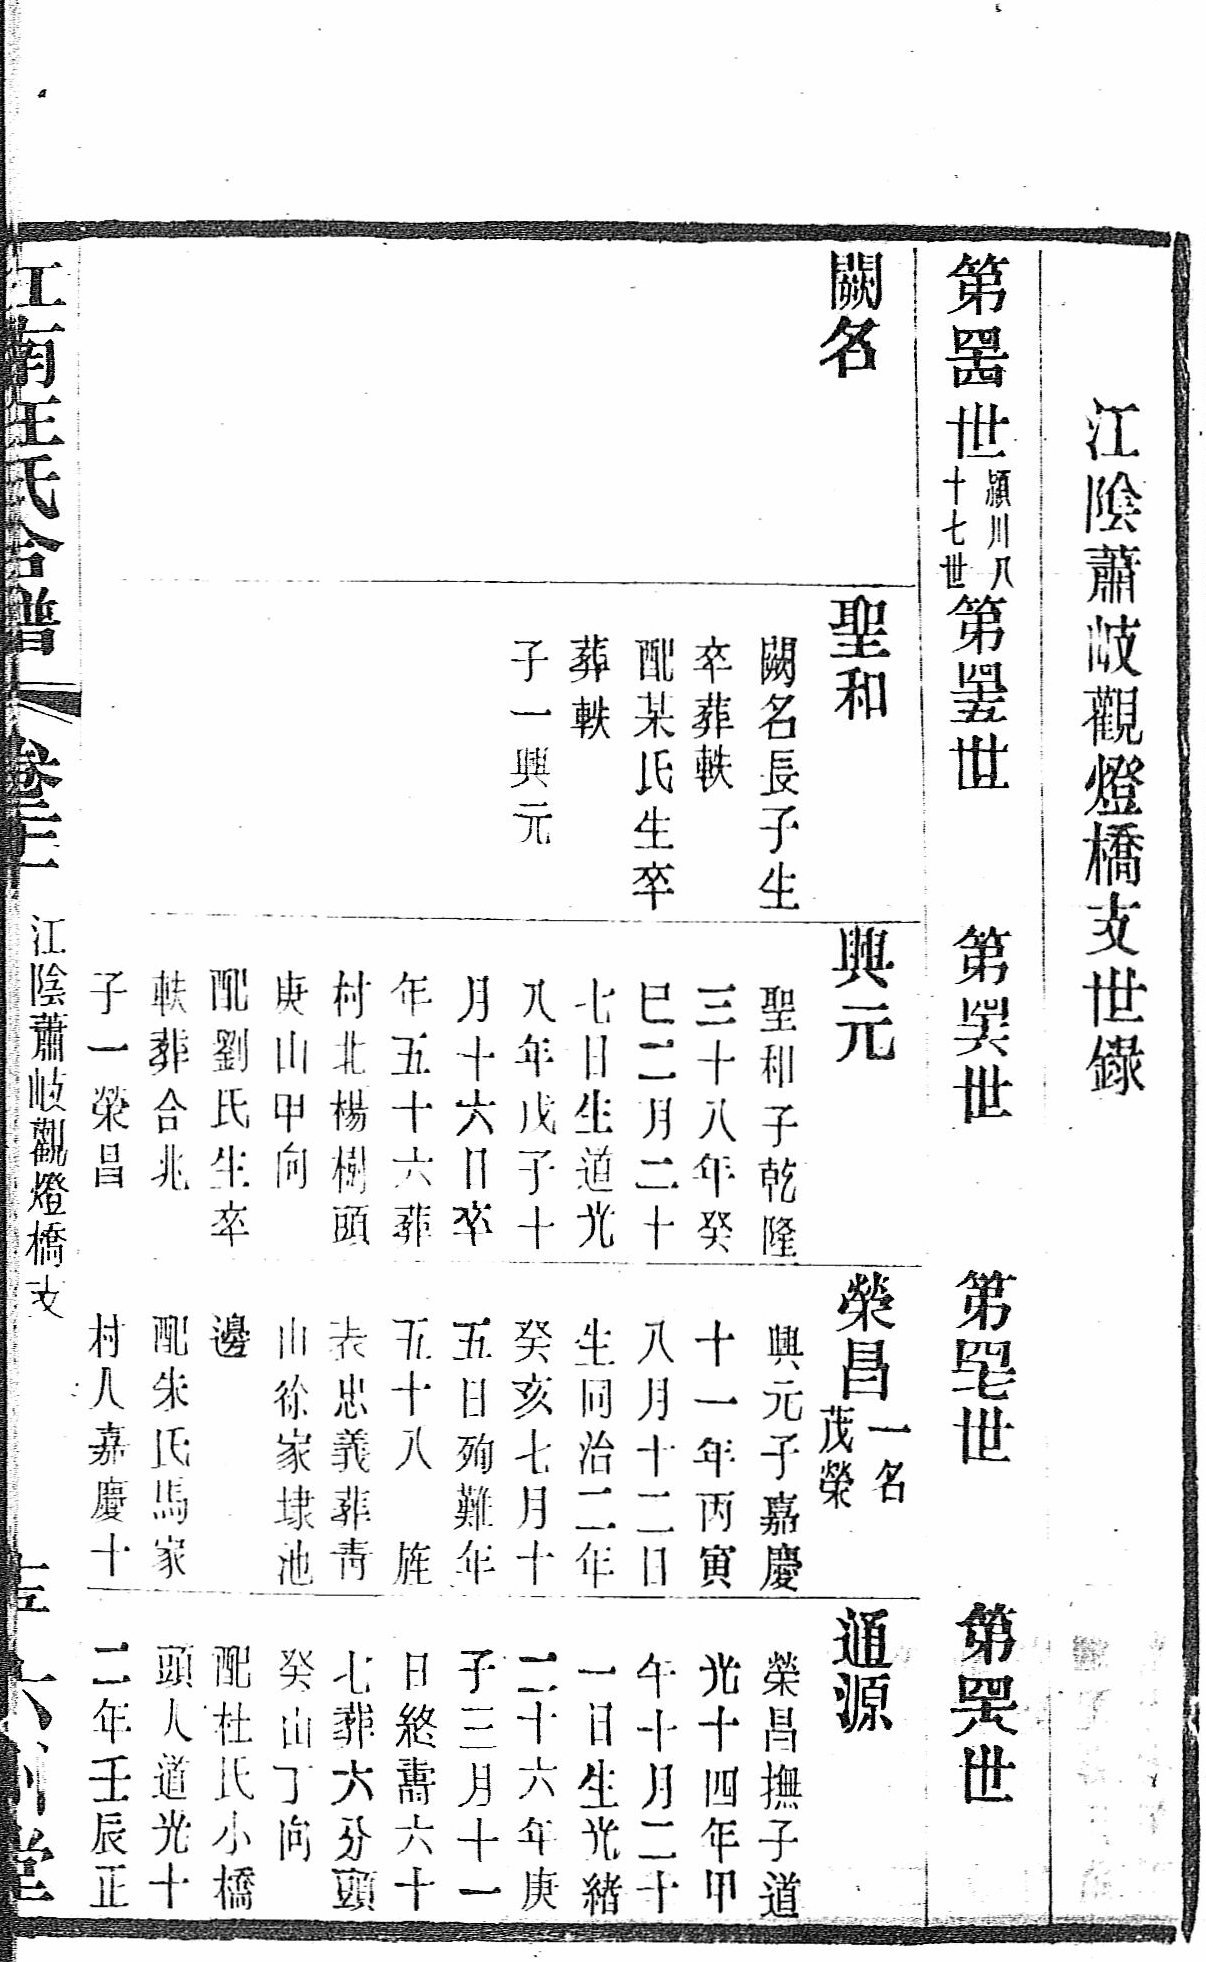 江陰蕭岐觀燈橋支世錄
第四十四世
潁川八
十七世
第四十五世
第四十六世
第四十七世
第四十八世
闕名
聖和
闕名長子生
卒葬軼
配某氏生卒
葬軼
子一興元
興元
聖和子乾隆
三十八年癸
巳二月二十
七日生道光
八年戊子十
月十六日卒
年五十六葬
村北楊樹頭
庚山甲向
配劉氏生卒
軼葬合兆
子一榮昌
榮昌
一名
茂榮
興元子嘉慶
十一年丙寅
八月十二日
生同治二年
癸亥七月十
五日殉難年
五十八 旌
表忠義葬靑
山徐家埭池
邊
配朱氏馬家
村人嘉慶十
通源
榮昌撫子道
光十四年甲
午十月二十
一日生光緒
二十六年庚
子三月十一
日終壽六十
七葬六分頭
癸山丁向
配杜氏小橋
頭人道光十
二年壬辰正
江南汪氏合譜
江陰蕭岐觀燈橋支